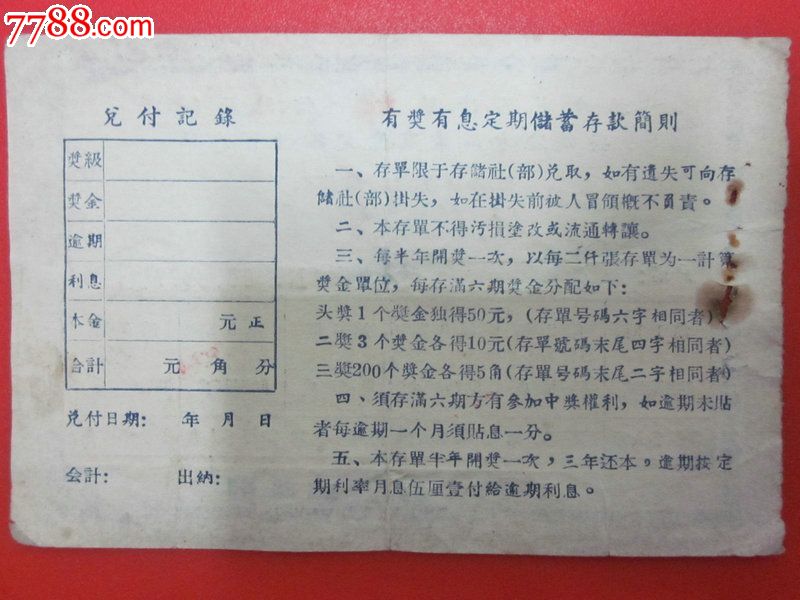 7788.com
兑付記錄
奬級
奬金
逾期
利息
本金 元正
合計 元 角 分
兑付日期： 年 月 日
会計： 出納：
有奬有息定期儲蓄存款簡則
一、存單限于存儲社(部)兑取，如有遺失可向存
儲社(部)掛失，如在掛失前被人冒領概不負責。
二、本存單不得汚損塗改或流通轉讓。
三、每半年開奬一次，以每二仟張存單为一計算
奬金單位，每存滿六期奬金分配如下：
头奬1个奬金独得50元，(存單号碼六字相同者)
二奬3个奬金各得10元(存單號碼末尾四字相同者)
三奬200个奬金各得5角(存單号碼末尾二字相同者)
四、須存滿六期方有參加中奬權利，如逾期未貼
者每逾期一个月須貼息一分。
五、本存單半年開奬一次，三年还本，逾期按定
期利率月息伍厘壹付給逾期利息。